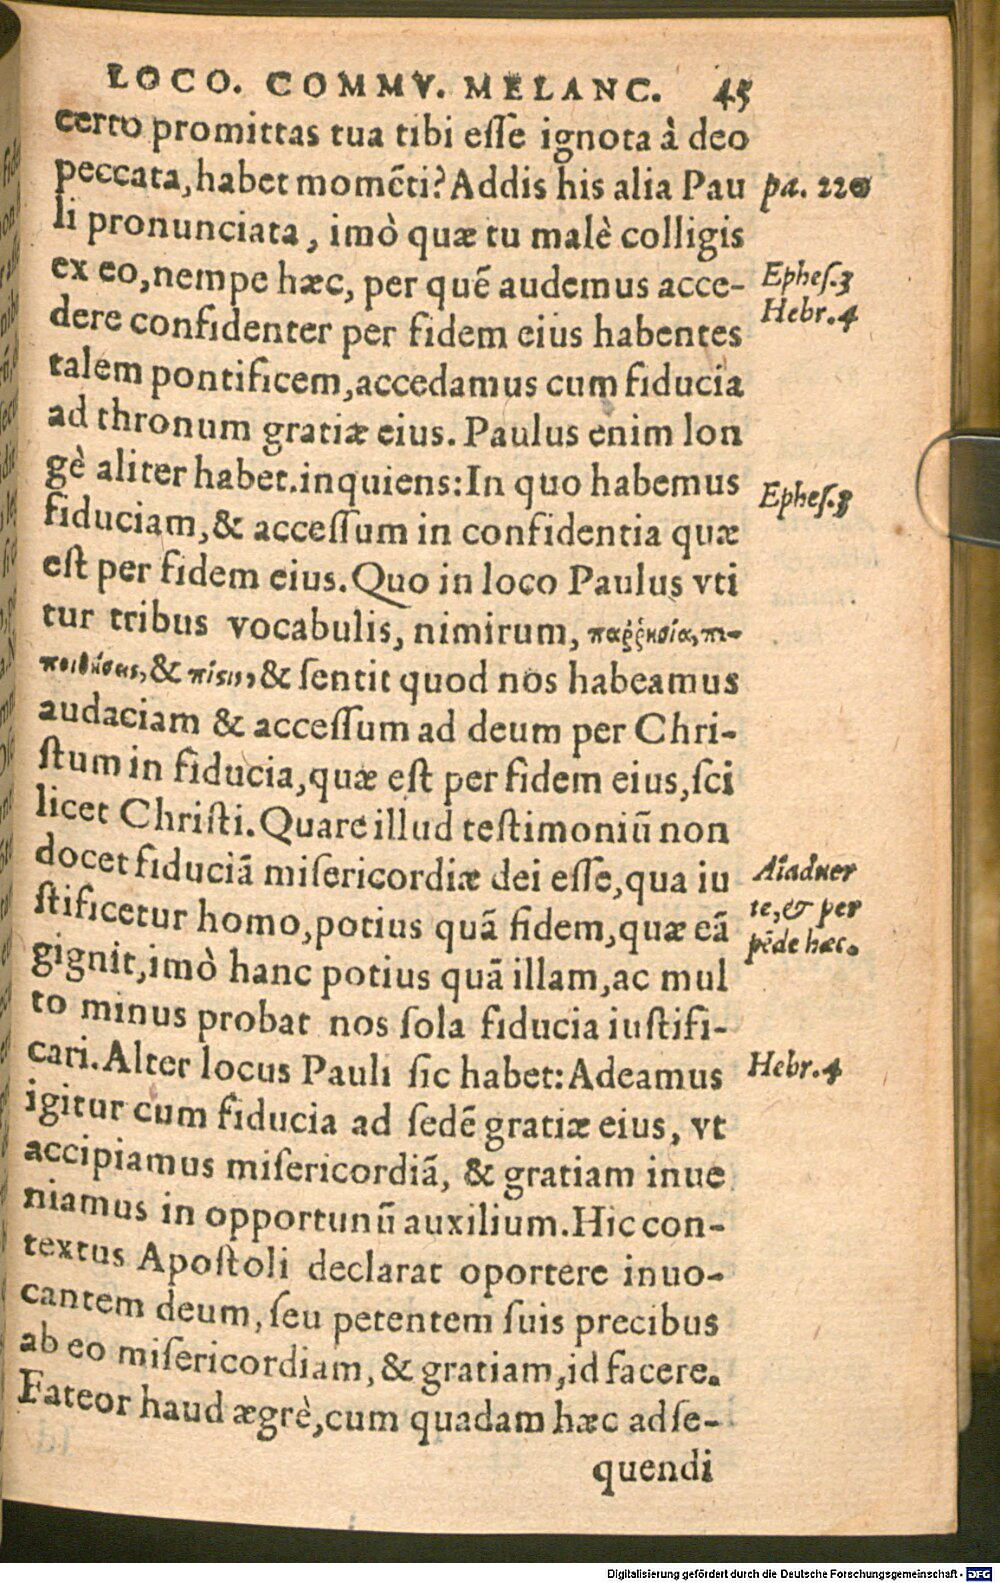 LOCO. COMMV. MELANC. 45
certo promittas tua tibi esse ignota à deo
peccata, habet momẽti? Addis his alia Pau
pa. 220
li pronunciata, imò quæ tu malè colligis
ex eo, nempe hæc, per quẽ audemus acce-
Ephes.3
dere confidenter per fidem eius habentes
Hebr.4
talem pontificem, accedamus cum fiducia
ad thronum gratiæ eius. Paulus enim lon
gè aliter habet. inquiens: In quo habemus
Ephes.3
fiduciam, & accessum in confidentia quæ
est per fidem eius. Quo in loco Paulus vti
tur tribus vocabulis, nimirum, παῤῥησία, πε-
ποιθήσει, & πίσει, & sentit quod nos habeamus
audaciam & accessum ad deum per Chri-
stum in fiducia, quæ est per fidem eius, sci
licet Christi. Quare illud testimoniũ non
docet fiduciã misericordiæ dei esse, qua iu
stificetur homo, potius quã fidem, quæ eã
te, & per
gignit, imò hanc potius quã illam, ac mul
pẽde hæc.
to minus probat nos sola fiducia iustifi-
cari. Alter locus Pauli sic habet: Adeamus
Hebr.4
igitur cum fiducia ad sedẽ gratiæ eius, vt
accipiamus misericordiã, & gratiam inue
niamus in opportunũ auxilium. Hic con-
textus Apostoli declarat oportere inuo-
cantem deum, seu petentem suis precibus
ab eo misericordiam, & gratiam, id facere.
Fateor haud ægrè, cum quadam hæc adse-
quendi
Digitalisierung gefördert durch die Deutsche Forschungsgemeinschaft - DFG